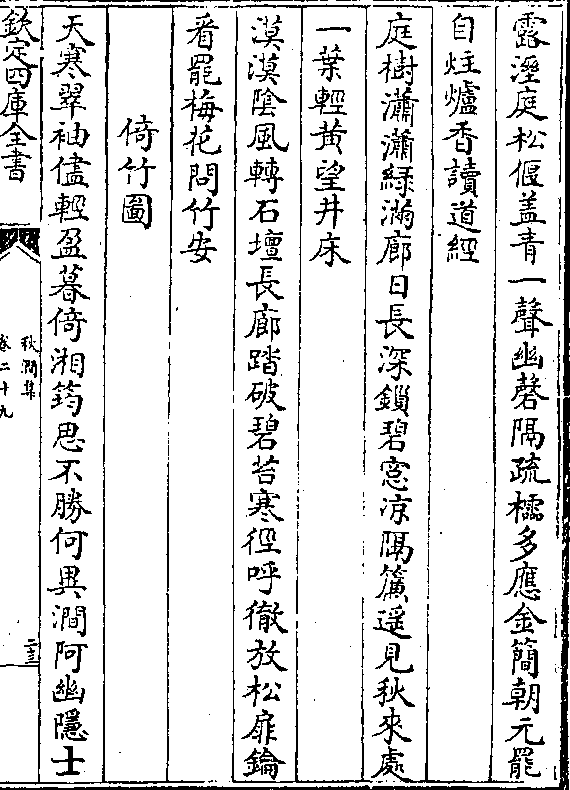 露溼庭松偃盖青一聲幽磬隔疏櫺多應金簡朝元罷
自炷爐香讀道經
庭樹瀟瀟緑滿廊日長深鎖碧窓凉隔簾遥見秋來處
一葉輕黄望井床
漠漠陰風轉石壇長廊踏破碧苔寒徑呼徹放松扉鑰
看罷梅花問竹安
倚竹圖
天寒翠袖儘輕盈暮倚湘筠思不勝何異澗阿幽隱士
欽定四庫全書
秋澗集
卷二十九
二三